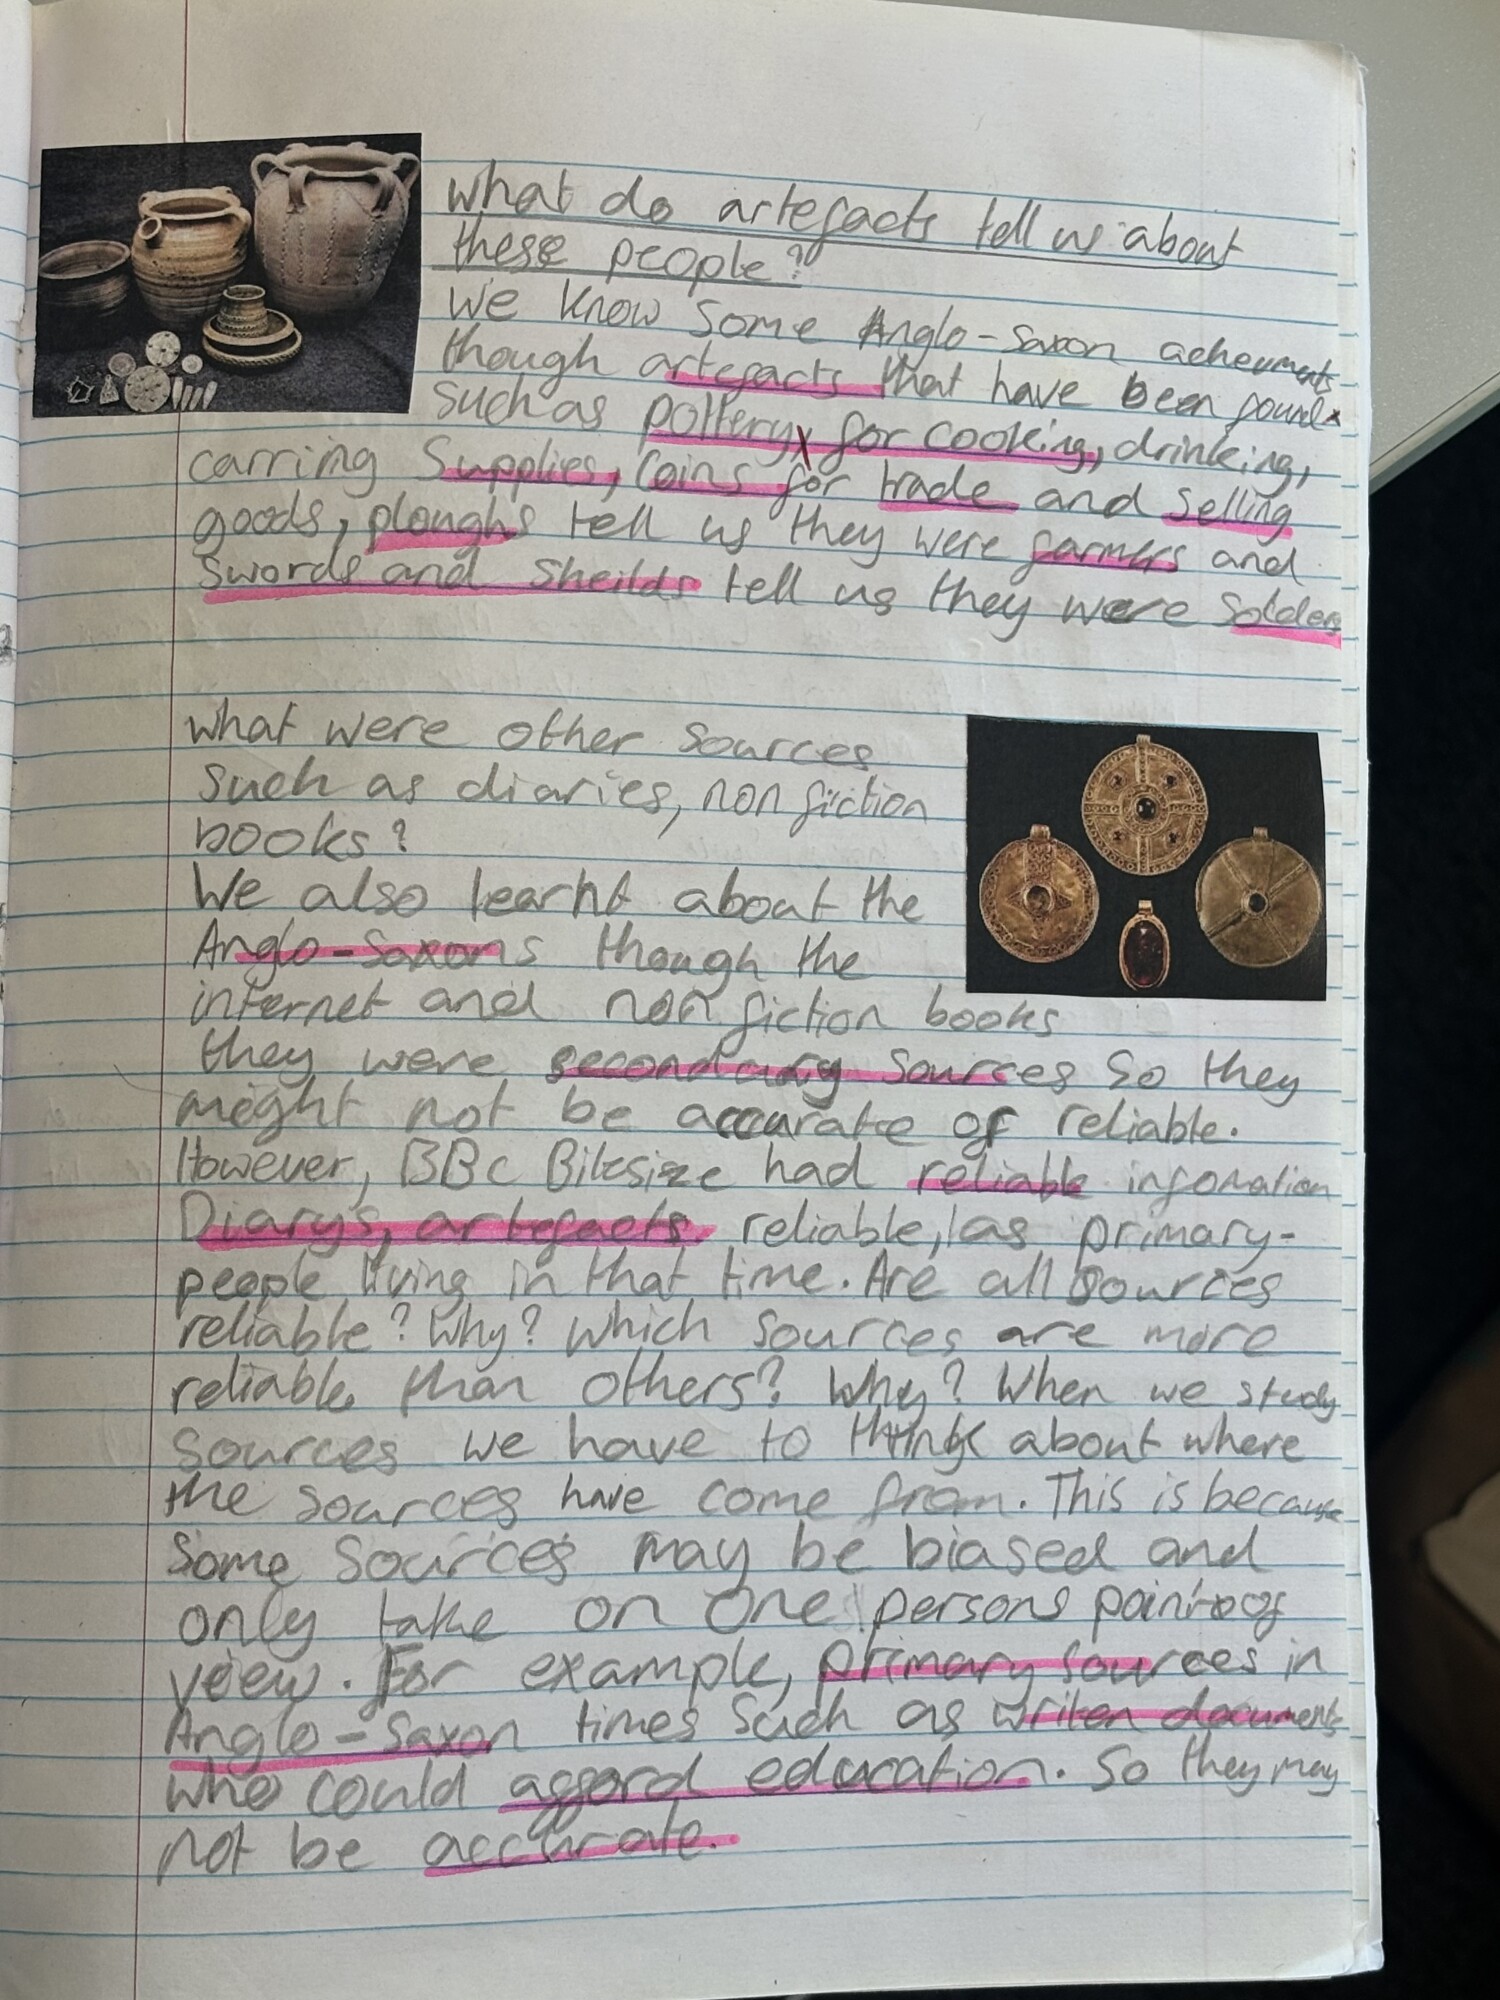 what do artefacts tell us about
these people?
We know some Anglo-Saxon acheuments
though artefacts that have been found
such as pottery, for cooking, drinking,
carring supplies, Coins for trade and selling
goods, ploughs tell us they were farmers and
swords and sheilds tell us they were solders
what were other sources
such as diaries, non fiction
books?
We also learnt about the
Anglo-Saxons though the
internet and non fiction books
they were secondary sources so they
might not be accurate of reliable.
However, BBc Bitesize had reliable infomation
Diary's, artefacts. reliable, as primary-
people living in that time. Are all sources
reliable? Why? Which sources are more
reliable than others? Why? When we study
sources we have to think about where
the sources have come from. This is because
some sources may be biased and
only take on one persons point of
veiew. For example, primary sources in
Anglo-Saxon times such as writen documents
who could afford education. So they may
not be accurate.